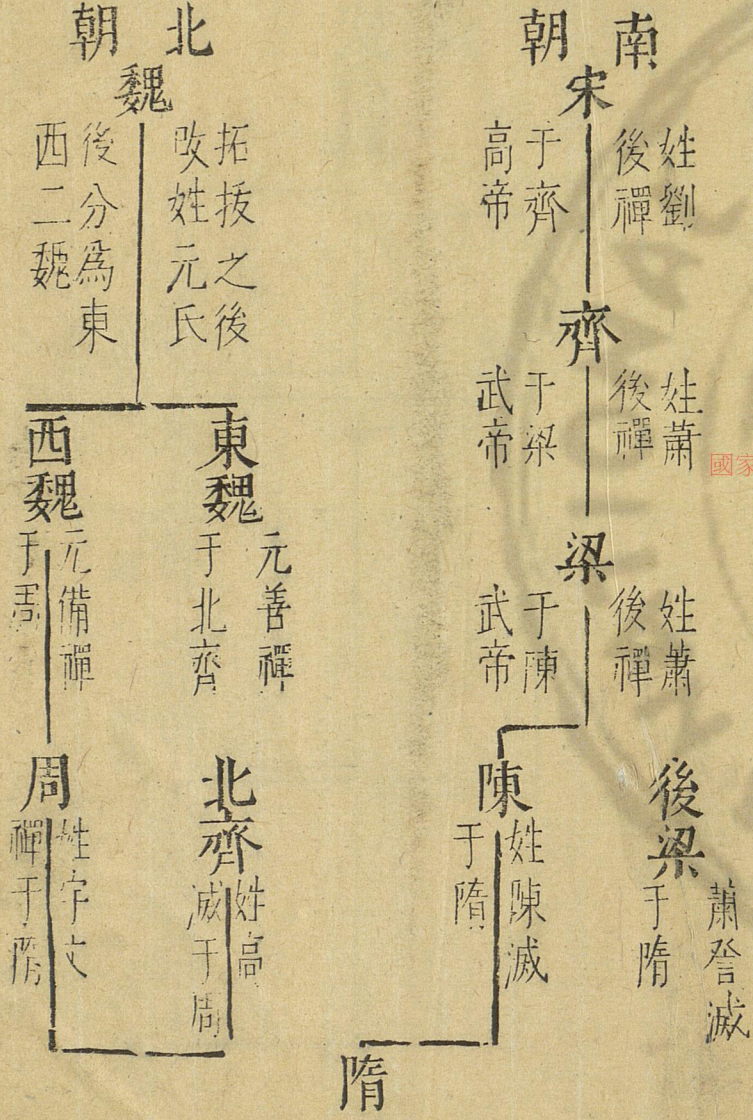 南朝
宋
姓劉
後禪
于齊
高帝
齊
姓蕭
後禪
于梁
武帝
梁
姓蕭
後禪
于陳
武帝
後梁
蕭詧滅
于隋
陳
姓陳滅
于隋
北朝
魏
拓拔之後
改姓元氏
後分爲東
西二魏
東魏
元善禪
于北齊
西魏
元備禪
于周
北齊
姓高
滅于周
周
姓宇文
禪于隋
隋
國家